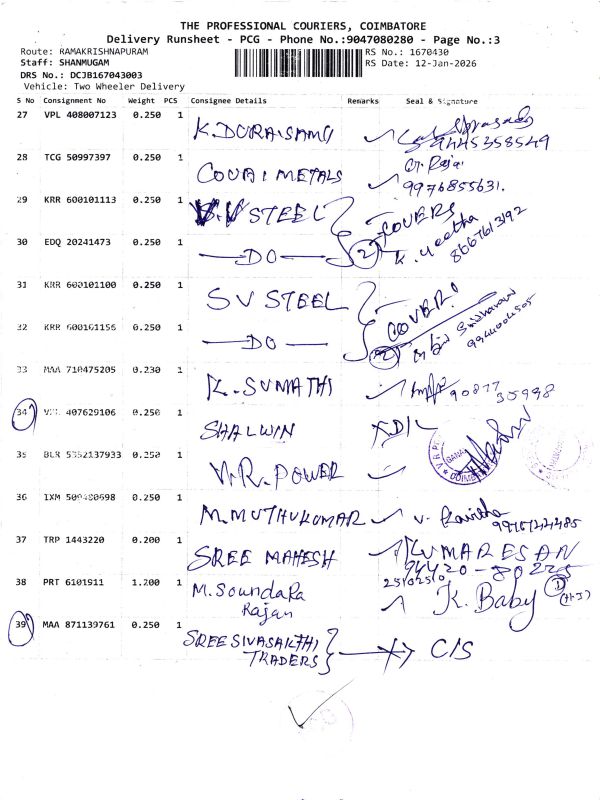 THE PROFESSIONAL COURIERS, COIMBATORE
Delivery Runsheet - PCG - Phone No.:9047080280 - Page No.:3
Route: RAMAKRISHNAPURAM
RS No.: 1670430
Staff: SHANMUGAM
RS Date: 12-Jan-2026
DRS No.: DCJB167043003
Vehicle: Two Wheeler Delivery
S No Consignment No Weight PCS Consignee Details Remarks Seal & Signature
27 VPL 408007123 0.250 1 K. DURAISAMY
9445358549
28 TCG 50997397 0.250 1 COVAI METALS G. Raja
9976855631.
29 KRR 600101113 0.250 1 V.V STEEL COVERS
30 EDQ 20241473 0.250 1 DO 2 K. Geetha
8667613192
31 KRR 600101100 0.250 1 SV STEEL COVER
32 KRR 600101156 0.250 1 DO 2
9944004505
33 MAA 710475205 0.230 1 K. SUMATHI 90877
35998
34 407629106 0.250 1 SHALWIN
35 BLR 5352137933 0.250 1 V.R. POWER
36 IXM 0.250 1 M. MUTHUKUMAR V. Kavitha
37 TRP 1443220 0.200 1 SREE MAHESH KUMARESAN
94420-80225
38 PRT 6101911 1.200 1 M. Soundara
Rajan K. Baby
39 MAA 871139761 0.250 1 SREE SIVASAKTHI
TRADERS C/S